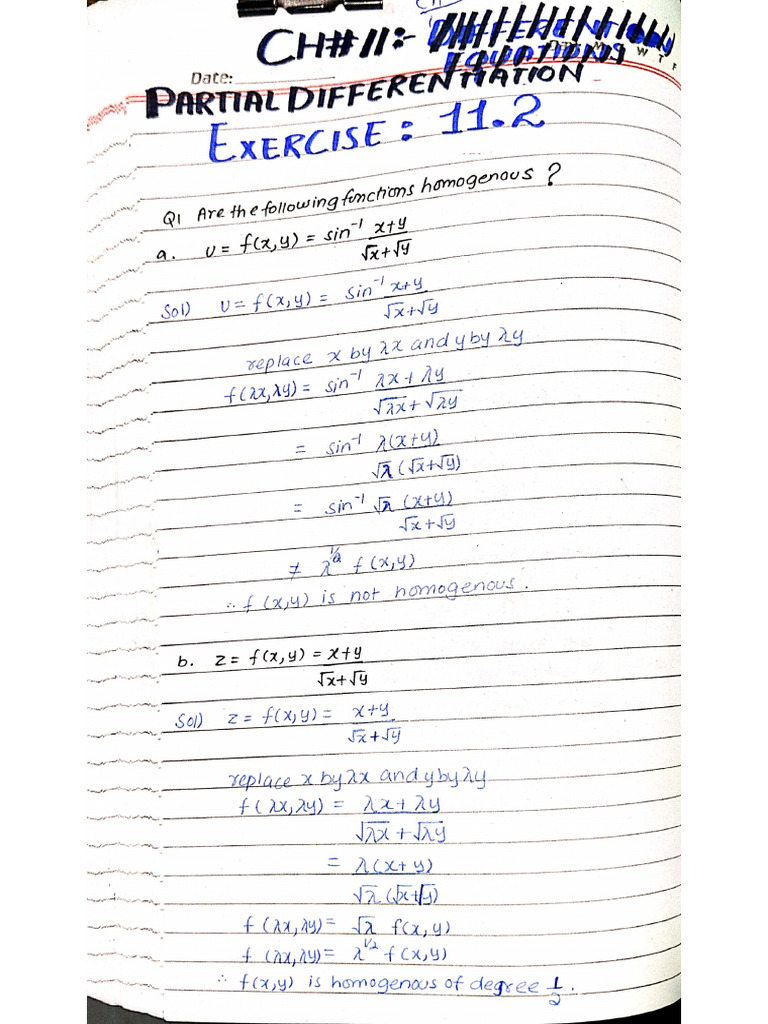 CH#11:- DIFFERENTION
EQUATIONS
Date:
PARTIAL DIFFERENTIATION
EXERCISE: 11.2
Q1 Are the following functions homogenous?
a. U = f(x,y) = sin⁻¹ x+y
√x+√y
Sol) U = f(x,y) = sin⁻¹ x+y
√x+√y
replace x by λx and y by λy
f(λx,λy) = sin⁻¹ λx + λy
√λx + √λy
= sin⁻¹ λ(x+y)
√λ (√x+√y)
= sin⁻¹ √λ (x+y)
√x+√y
≠ λ^1/2 f(x,y)
∴ f(x,y) is not homogenous.
b. z = f(x,y) = x+y
√x+√y
Sol) z = f(x,y) = x+y
√x+√y
replace x by λx and y by λy
f(λx,λy) = λx + λy
√λx + √λy
= λ(x+y)
√λ(√x+√y)
f(λx,λy) = √λ f(x,y)
f(λx,λy) = λ^1/2 f(x,y)
∴ f(x,y) is homogenous of degree 1/2.